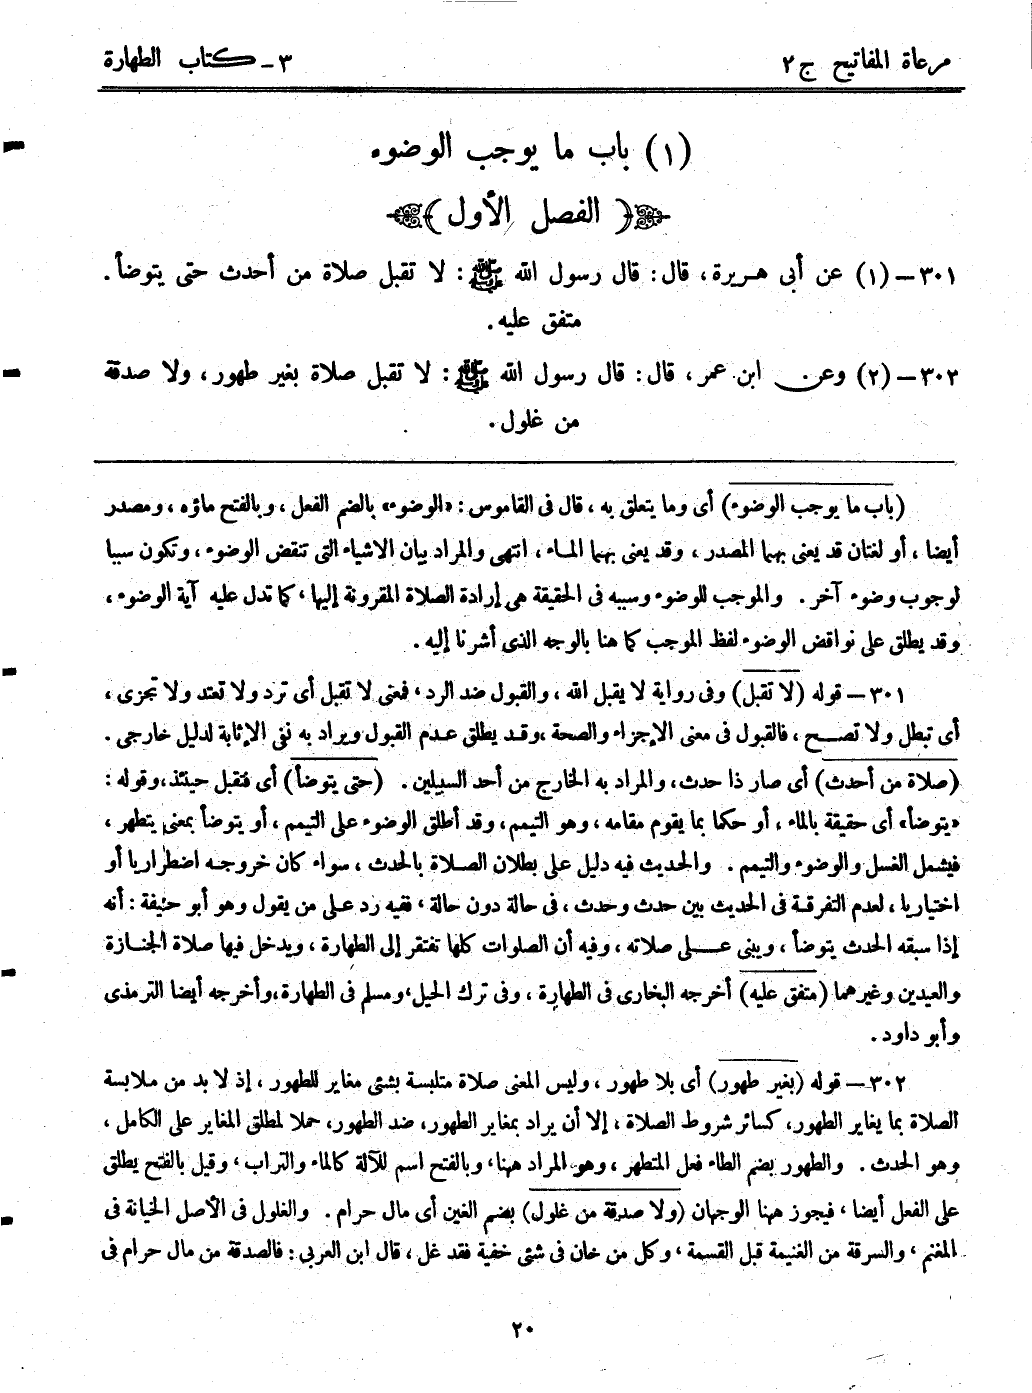 مرعاة المفاتيح ج٢ ٣ـ كتاب الطهارة
(١) باب ما يوجب الوضوء
﴿ الفصل الأول ﴾
٣٠١ – (١) عن أبى هريرة، قال: قال رسول الله ﷺ: لا تقبل صلاة من أحدث حتى يتوضأ.
متفق عليه.
٣٠٢ – (٢) وعن ابن عمر، قال: قال رسول الله ﷺ: لا تقبل صلاة بغير طهور، ولا صدقة
من غلول.
(باب ما يوجب الوضوء) أى وما يتعلق به، قال فى القاموس: «الوضوء» بالضم الفعل، وبالفتح ماؤه، ومصدر
أيضا، أو لغتان قد يعنى بهما المصدر، وقد يعنى بهما الماء، انتهى والمراد بيان الاشياء التى تنقض الوضوء، وتكون سببا
لوجوب وضوء آخر. والموجب للوضوء وسببه فى الحقيقة هى إرادة الصلاة المقرونة إليها، كما تدل عليه آية الوضوء،
وقد يطلق على نواقض الوضوء لفظ الموجب كما هنا بالوجه الذى أشرنا إليه.
٣٠١ – قوله (لا تقبل) وفى رواية لا يقبل الله، والقبول ضد الرد، فمعنى لا تقبل أى ترد ولا تعتد ولا تجزى،
أى تبطل ولا تصح، فالقبول فى معنى الإجزاء والصحة، وقد يطلق عدم القبول ويراد به نفى الإثابة لدليل خارجى.
(صلاة من أحدث) أى صار ذا حدث، والمراد به الخارج من أحد السبيلين. (حتى يتوضأ) أى فتقبل حينئذ، وقوله:
«يتوضأ» أى حقيقة بالماء، أو حكما بما يقوم مقامه، وهو التيمم، وقد أطلق الوضوء على التيمم، أو يتوضأ بمعنى يتطهر،
فيشمل الغسل والوضوء والتيمم. والحديث فيه دليل على بطلان الصلاة بالحدث، سواء كان خروجه اضطراريا أو
اختياريا، لعدم التفرقة فى الحديث بين حدث وحدث، فى حالة دون حالة، ففيه رد على من يقول وهو أبو حنيفة: أنه
إذا سبقه الحدث يتوضأ، ويبنى على صلاته، وفيه أن الصلوات كلها تفتقر إلى الطهارة، ويدخل فيها صلاة الجنازة
والعيدين وغيرهما (متفق عليه) أخرجه البخارى فى الطهارة، وفى ترك الحيل، ومسلم فى الطهارة، وأخرجه أيضا الترمذى
وأبو داود.
٣٠٢ – قوله (بغير طهور) أى بلا طهور، وليس المعنى صلاة متلبسة بشئى مغاير للطهور، إذ لا بد من ملابسة
الصلاة بما يغاير الطهور، كسائر شروط الصلاة، إلا أن يراد بمغاير الطهور، ضد الطهور، حملا لمطلق المغاير على الكامل،
وهو الحدث. والطهور بضم الطاء فعل المتطهر، وهو المراد ههنا، وبالفتح اسم للآلة كالماء والتراب، وقيل بالفتح يطلق
على الفعل أيضا، فيجوز ههنا الوجهان (ولا صدقة من غلول) بضم الغين أى مال حرام. والغلول فى الأصل الخيانة فى
المغنم، والسرقة من الغنيمة قبل القسمة، وكل من خان فى شئى خفية فقد غل، قال ابن العربى: فالصدقة من مال حرام فى
٢٠